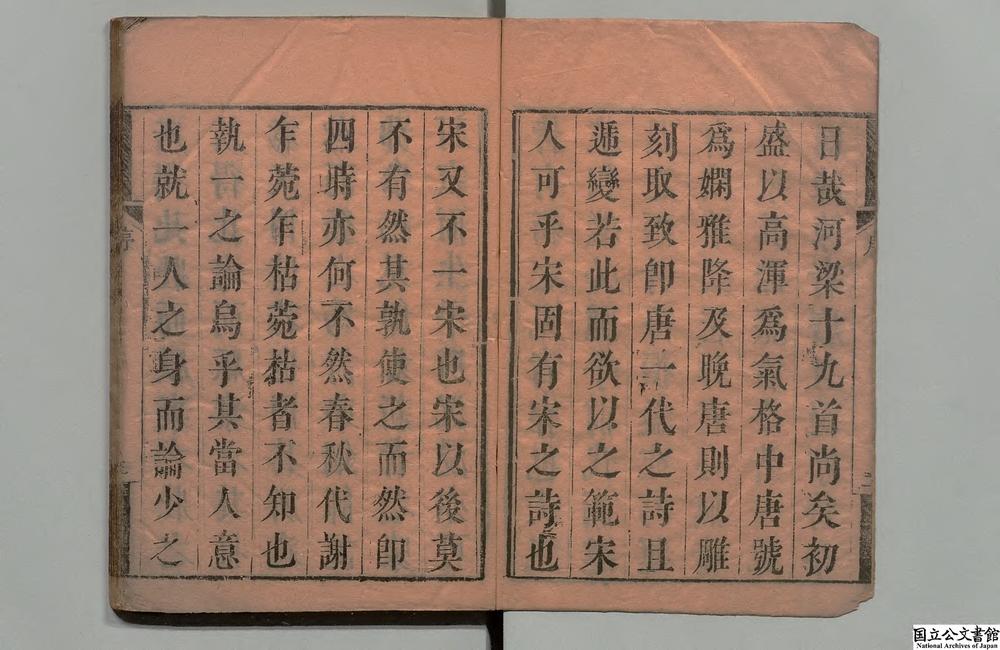 日哉河梁十九首尚矣初
盛以高渾爲氣格中唐號
爲嫻雅降及晚唐則以雕
刻取致卽唐一代之詩且
遞變若此而欲以之範宋
人可乎宋固有宋之詩也
宋又不一宋也宋以後莫
不有然其孰使之而然卽
四時亦何不然春秋代謝
乍菀乍枯菀枯者不知也
執一之論烏乎其當人意
也就一人之身而論少之
序
国立公文書館
National Archives of Japan